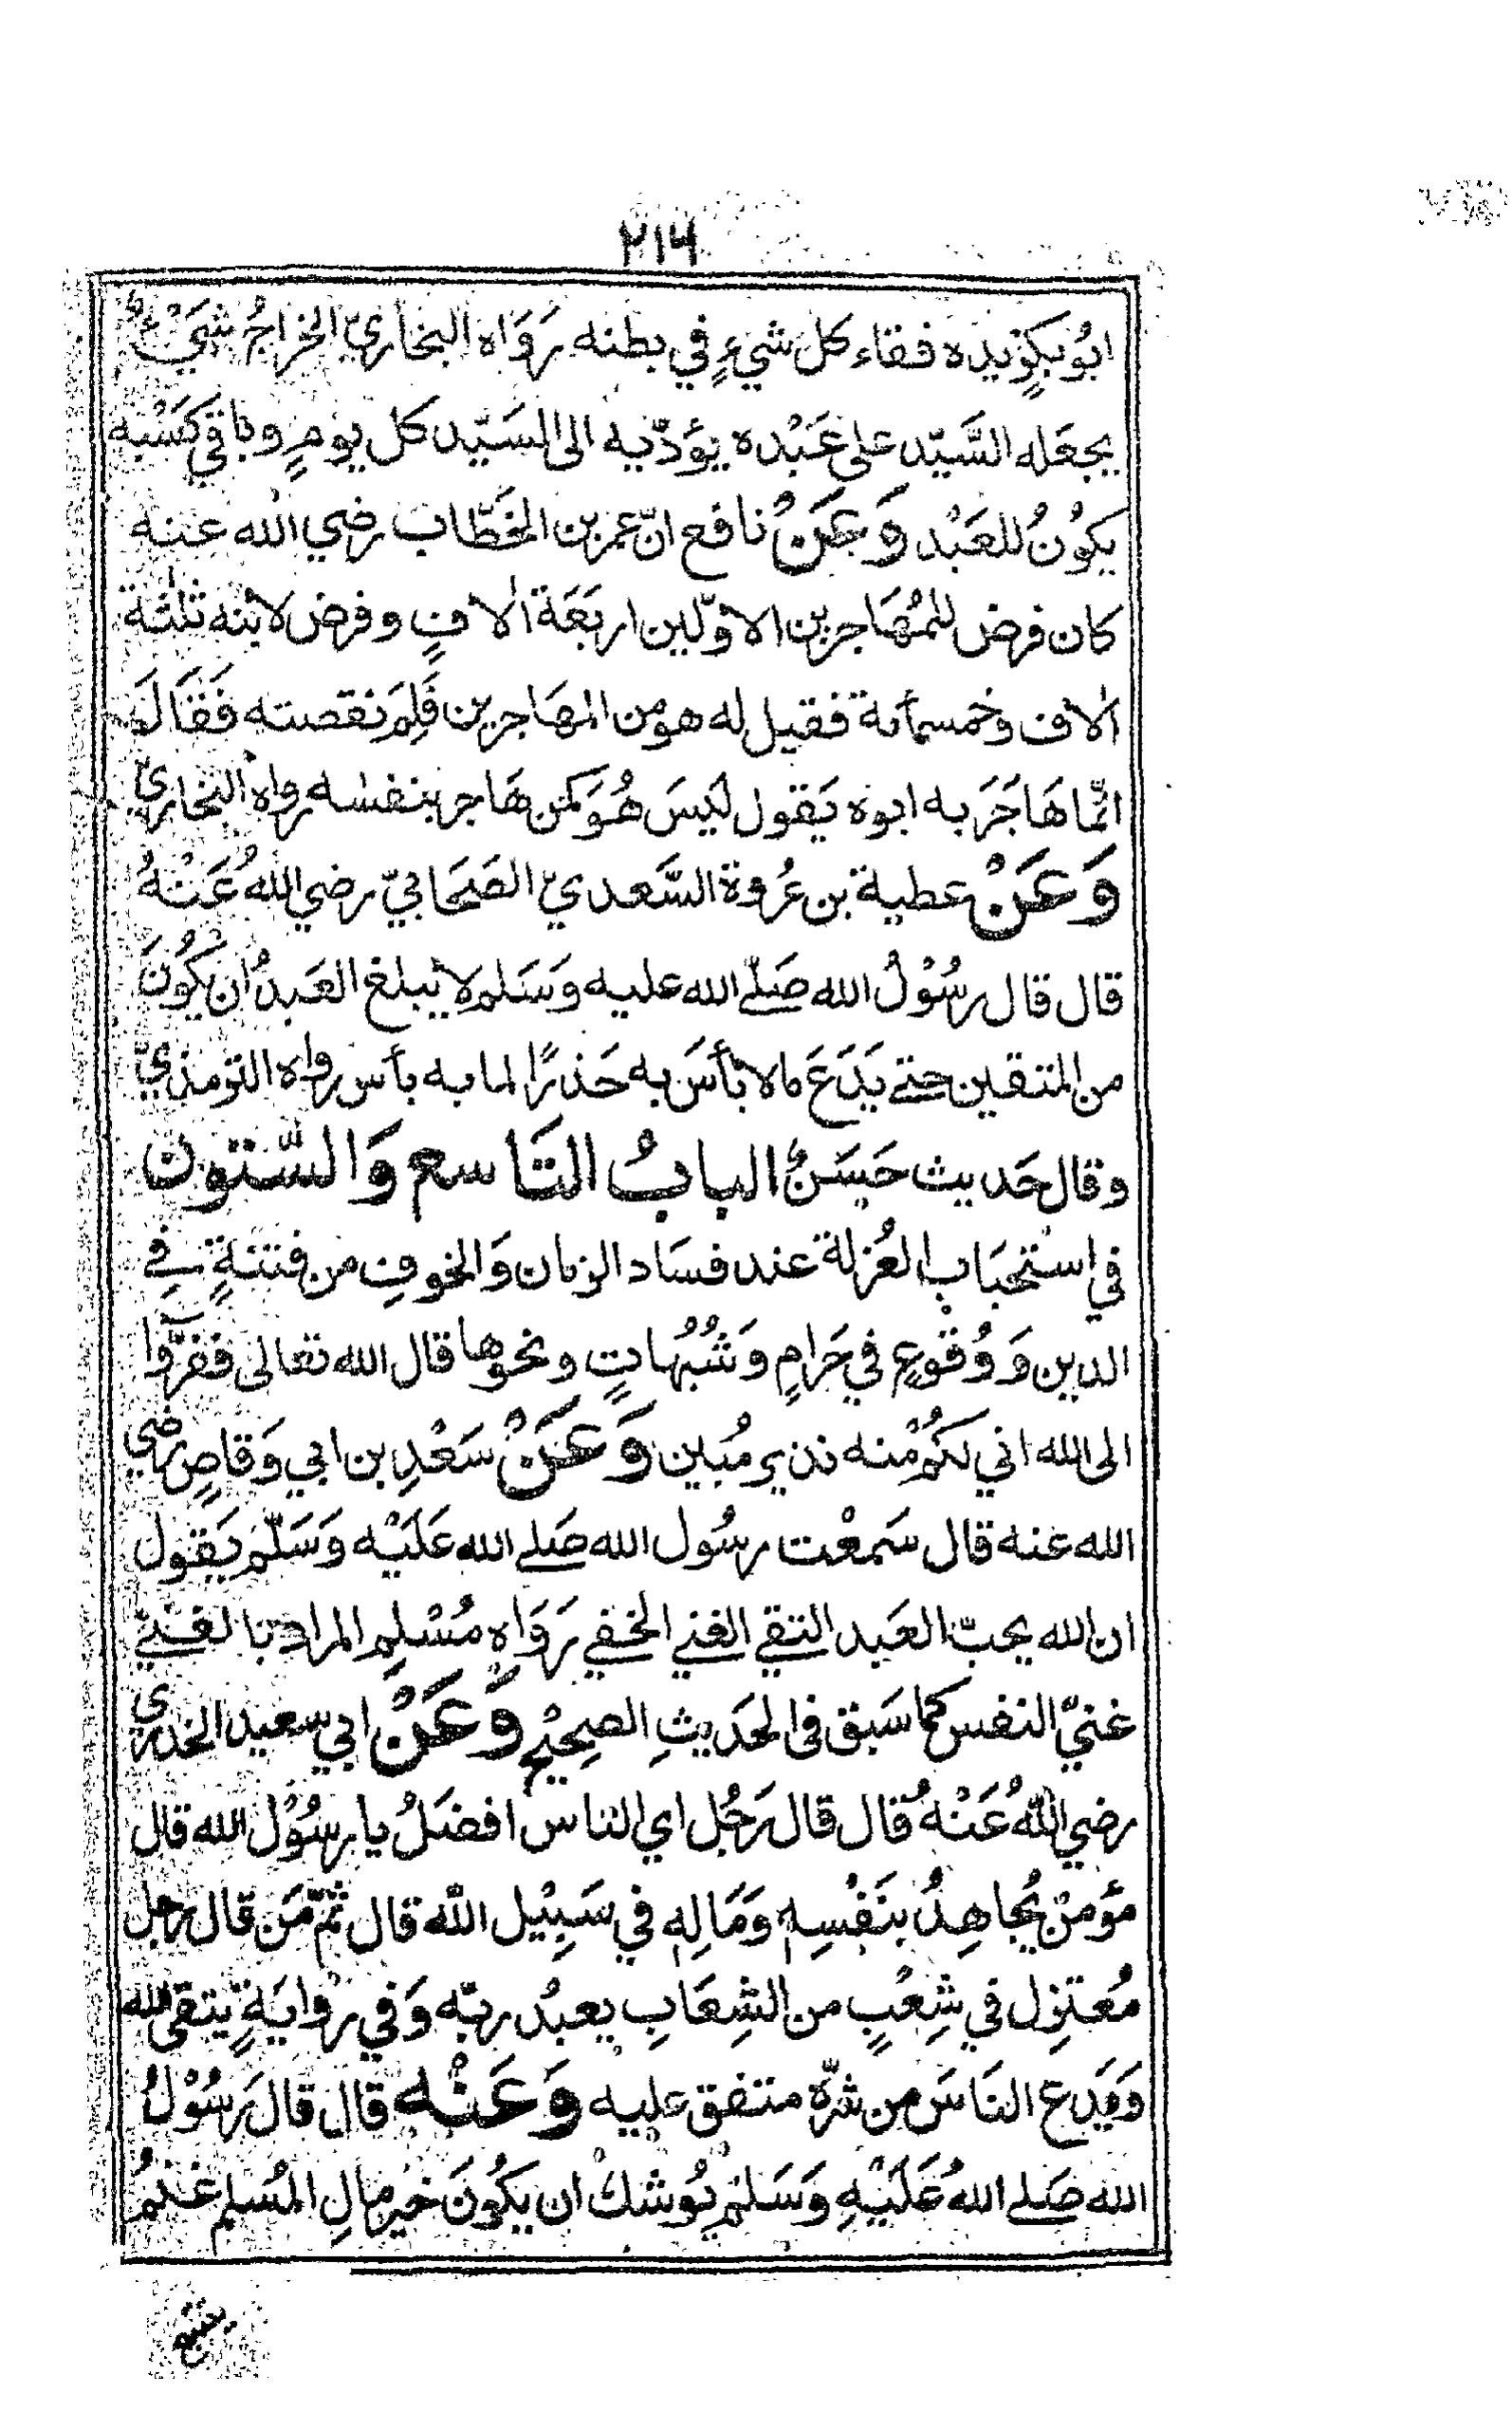 ٢١٤
ابُو بكرٍ يده فقاء كل شيءٍ في بطنه رَوَاه البخاريّ الخراجُ شَيْءٌ
يجعَله السَّيّد على عَبْده يؤدّيه الى السَيّد كل يومٍ وباقي كَسْبه
يكوُنُ للعَبْد وَعَنْ نافع انّ عمر بن الخَطّاب رضي الله عنه
كان فرض للمُهَاجرين الاوّلين اربَعَة اٰلافٍ وفرض لابنه ثلٰثة
اٰلاف وخمسمأئة فقيل له هو من المهَاجرين فَلِمَ نقصته فَقَالَ
انّما هَاجَرَ به ابوه يَقول لَيسَ هُوَ كمن هَاجر بنفسه رواه البخاريّ
وَعَنْ عطية بن عُروة السَّعديّ الصَحَابيّ رضي اللهُ عَنْهُ
قال قال رسُوْلُ الله صَلّے الله عليه وَسَلم لا يبلغ العَبدُ ان يكُونَ
من المتقين حتے يَدَعَ مالا بأسَ به حَذرًا لما به بأس رواه الترمذيّ
وقال حَديث حَسَنٌ البابُ التَاسع وَالسّتون
في استحبَاب العُزلة عند فسَاد الزمان وَالخوفِ من فتنةٍ في
الدين وَ وُقوعٍ في حَرامٍ وَشُبُهاتٍ ونحوها قال الله تعالى ففرّوا
الى الله اني لكمُ منه نذير مُبين وَعَنْ سَعْدِ بن ابي وَقاصٍ رضي
الله عنه قال سَمعْت رسُول الله صَلے الله عَلَيْه وَسَلّم يَقول
ان الله يحبّ العَبد التقے الغنے الخفے رَوَاه مُسْلِم المراد بالغنےّ
غنيّ النفس كما سَبق فى الحَديثِ الصِحِيْح وَعَنْ ابي سعيد الخدري
رضي اللهُ عَنْهُ قال قال رَجُل اي الناس افضَلُ يا رسُوْل الله قال
مؤمنٌ يُجاهِدُ بنَفْسِهٖ وَمَالِهٖ في سَبِيْل الله قال ثمّ مَن قال رجل
مُعتَزِل في شِعْبٍ من الشِعَابِ يعبدُ ربّه وَفي روايَةٍ يتقى الله
وَيَدع النَاسَ من شرّه متفق عليه وَعَنْه قال قال رَسُوْلُ
الله صَلے اللهُ عَلَيْهِ وَسَلم يُوشك ان يكُونَ خير مالِ المُسلم غنمٌ
يتبع